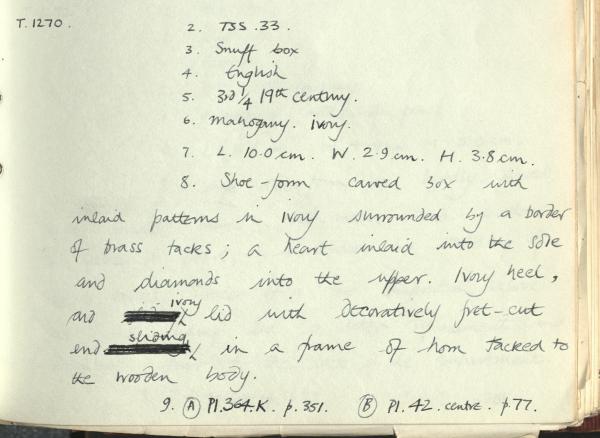 T.1270.
2. TSS.33.
3. Snuff box
4. English
5. 3rd 1/4 19th century.
6. Mahogany. ivory.
7. L. 10.0 cm. W. 2.9 cm. H. 3.8 cm.
8. Shoe-form carved box with
inlaid patterns in ivory surrounded by a border
of brass tacks; a heart inlaid into the sole
and diamonds into the upper. Ivory heel,
and ivory lid with decoratively fret-cut
end sliding in a frame of horn tacked to
the wooden body.
9. (A) Pl. 364.K. p. 351. (B) Pl. 42. centre. p. 77.